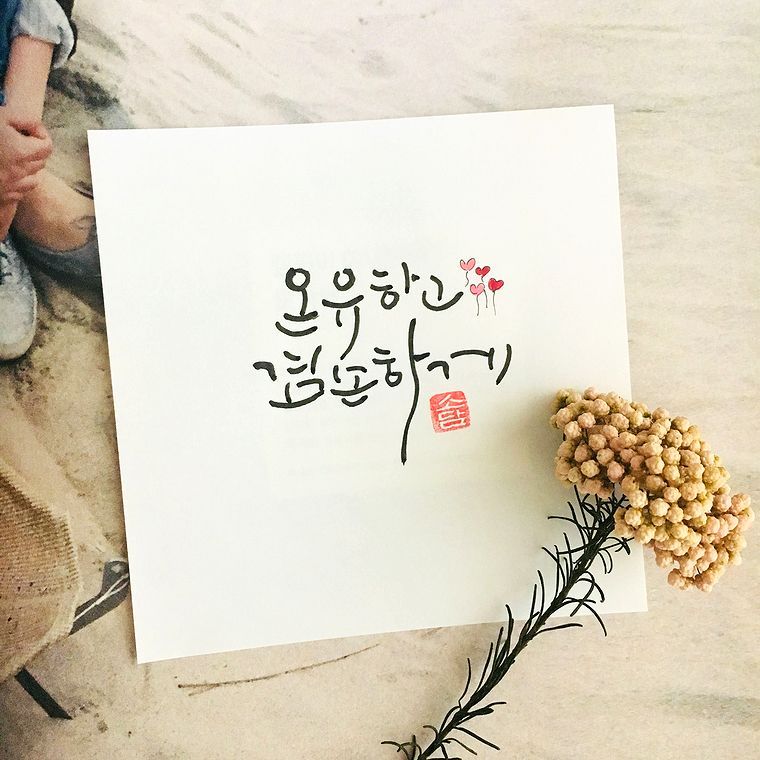 온유하고
겸손하게
소담